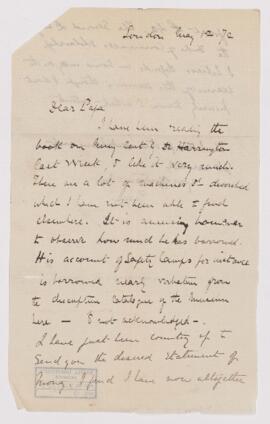 London May 1st 72
Dear Papa
I have been reading the
book on
last week, I like it very much.
There are a lot of machines &c described
which I have not been able to find
elsewhere. It is amusing however
to observe how much he has borrowed.
His account of Safety Lamps for instance
is borrowed nearly verbatim from
the descriptive Catalogue of the Museum
here — & not acknowledged —.
I have just been counting up to
send you the desired statement of
money. I find I have now altogether